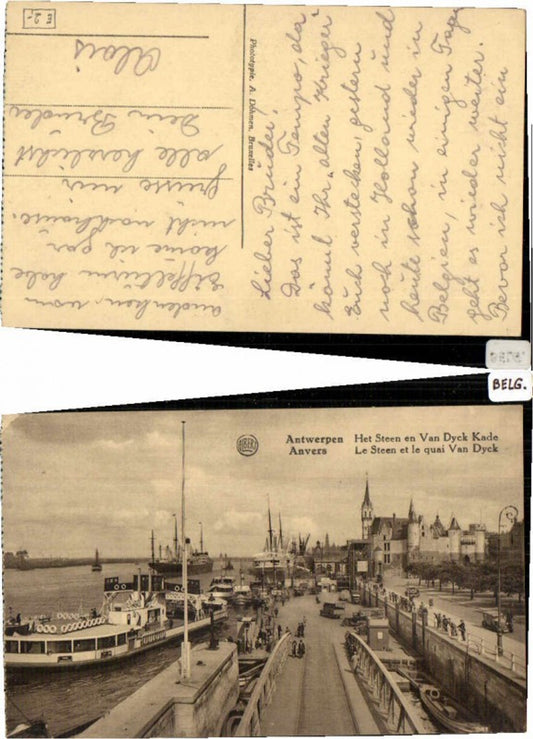 Lieber Bruder!
Das ist ein Tempo, da
könnt Ihr „alten Krieger"
Euch verstecken, gestern
noch in Holland und
heute schon wieder in
Belgien, in einigen Tagen
geht es wieder weiter.
Bevor ich nicht ein
andenken vom
Eiffelturm habe
komme ich gar
nicht nachhause.
Grüsse mir
alle herzlichst
Dein Bruder
Alois
Phototypie. A. Dohmen, Bruxelles
BELG.
ALBERT
Antwerpen Het Steen en Van Dyck Kade
Anvers Le Steen et le quai Van Dyck